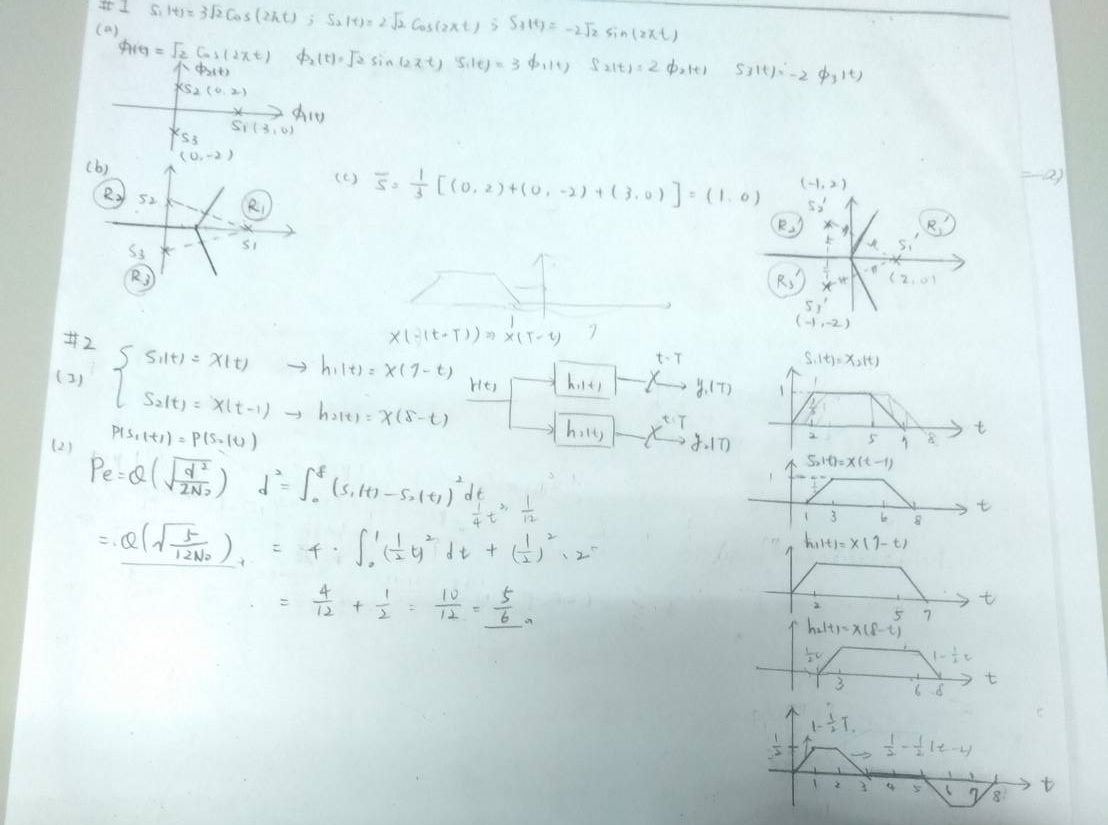 #1 S₁(t)=3√2 Cos(2πt) ; S₂(t)=2√2 Cos(2πt) ; S₃(t)=-2√2 sin(2πt)
(a)
ϕ₁(t)=√2 Cos(2πt) ϕ₂(t)=√2 sin(2πt) S₁(t)=3 ϕ₁(t) S₂(t)=2 ϕ₂(t) S₃(t)=-2 ϕ₃(t)
ϕ₂(t)
S₂(0,2)
ϕ₁(t)
S₁(3,0)
S₃
(0,-2)
(b)
R₂ S₂ R₁
S₁
S₃
R₃
(c) S̅ = 1/3 [(0,2)+(0,-2)+(3,0)] = (1,0)
(-1,2)
S₂'
R₂' R₁'
S₁'
(2,0)
R₃'
S₃'
(-1,-2)
X(-(t-T)) => X(T-t)
#2
(3) { S₁(t) = X(t) → h₁(t) = X(7-t)
S₂(t) = X(t-1) → h₂(t) = X(8-t)
r(t) h₁(t) t=T y₁(T)
h₂(t) t=T y₂(T)
P(S₁(t)) = P(S₂(t))
(2)
Pe = Q(√(d²/2N₀)) d² = ∫₀⁸ (S₁(t) - S₂(t))² dt
= Q(√(5/12N₀)) = 4 · ∫₀¹ (1/2 t)² dt + (1/2)² · 2
= 4/12 + 1/2 = 10/12 = 5/6
S₁(t)=X₂(t)
1
2 5 7 8 t
S₂(t)=X(t-1)
1
1 3 6 8 t
h₁(t)=X(7-t)
2 5 7 t
h₂(t)=X(8-t)
1/2 t 1-1/2 t
3 6 8 t
1-1/2 T
1/2 → 1/2 - 1/2 (t-2)
1 2 3 4 5 6 7 8 t